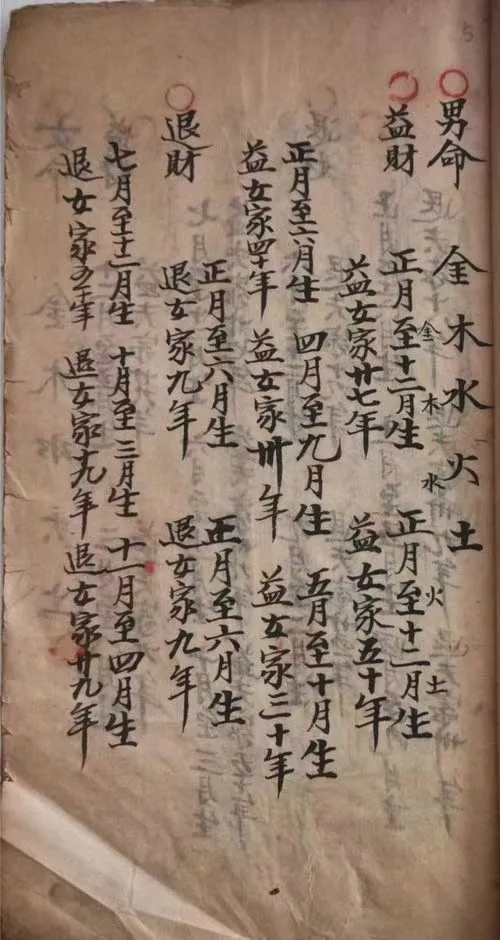 5
男命 金木水火土
金 木 水 火 土
益財 正月至十二月生 正月至十二月生
益女家廿七年 益女家五十年
正月至六月生 四月至九月生 五月至十月生
益女家四十年 益女家卅年 益女家三十年
退財 正月至六月生 正月至六月生
退女家九年 退女家九年
七月至十二月生 十月至三月生 十一月至四月生
退女家年 退女家十九年 退女家廿九年